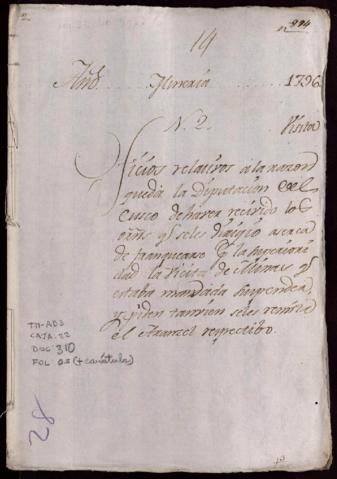 nº 894
14
And. Mineria 1796
N. 2. Visitas
Oficios relativos à la razon
queda la Diputacion del
Cusco dehaver recivido los
orns. qe seles dirigió acerca
de franquearse pr la Superiori
dad la Vicita de Minas qe
estaba mandada suspender,
y piden tamvien seles remita
el Aranzel respectibo.
TM-AD3
CAJA: 22
DOC: 310
FOL: 02 (+ carátula)
28